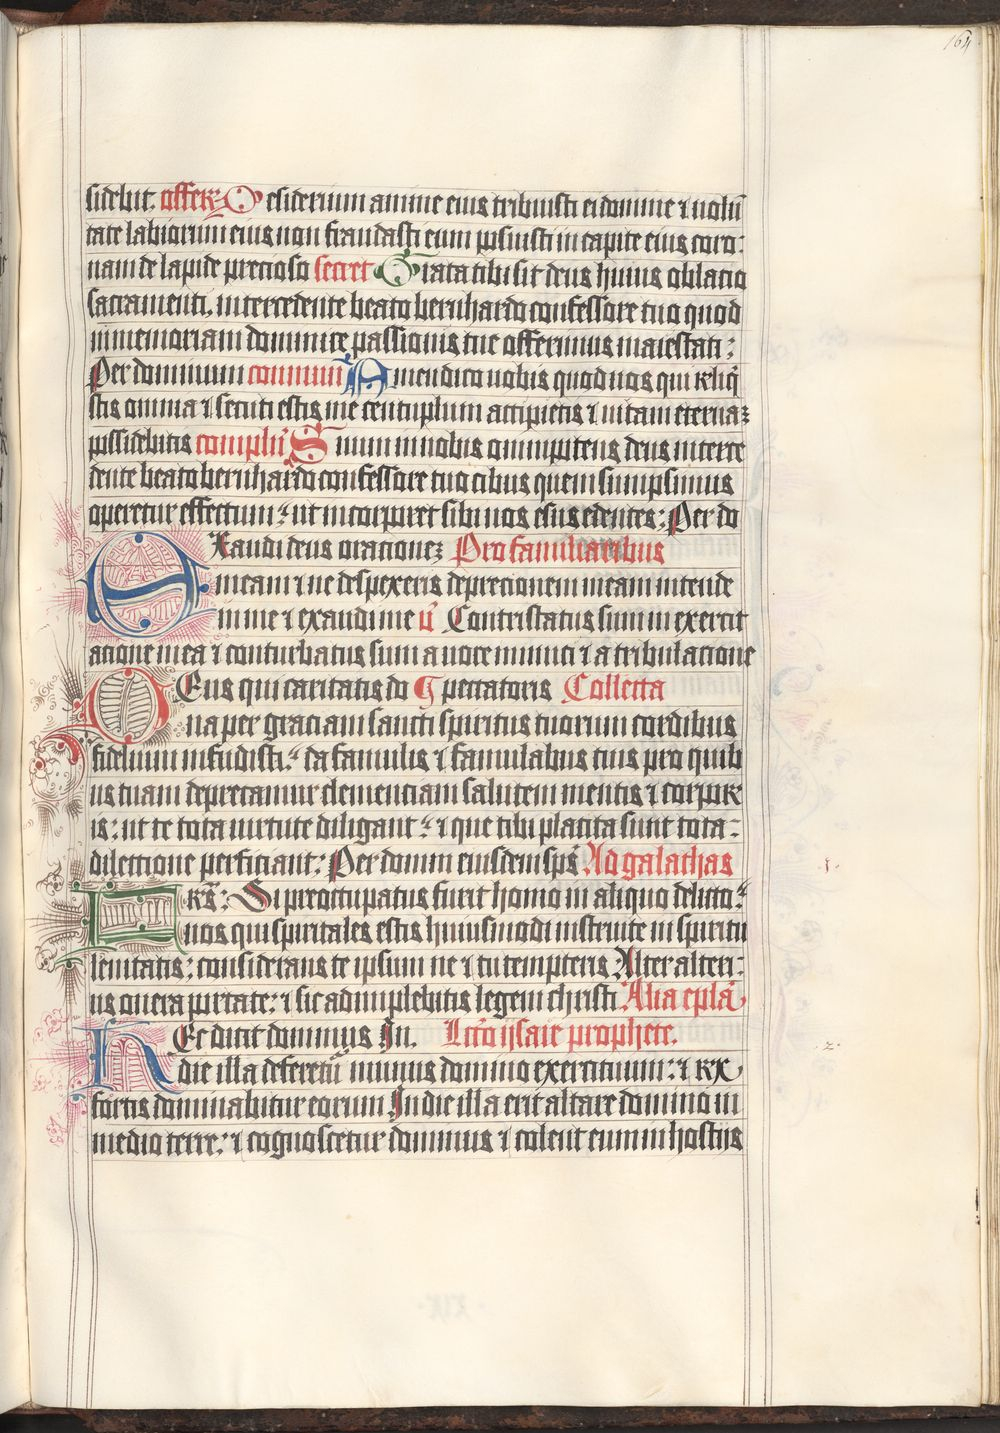 164
sidebit. offer Desiderium anime eius tribuisti ei domine ⁊ uolū
tate labiorum eius non fraudasti eum posuisti in capite eius coro:
nam de lapide precioso secret Grata tibi sit deus huius oblacio
sacramenti. intercedente beato bernhardo confessore tuo quod
in memoriam dominice passionis tue offerimus maiestati:
Per dominum commun Amen dico uobis quod nos qui reliq̄
stis omnia ⁊ secuti estis me centuplum accipietis ⁊ uitam eternaꝫ
possidebitis complen Sumum in nobis omnipotens deus interce
dente beato bernhardo confessore tuo cibus quem sumpsimus
operetur effectum: ut incorporet sibi nos esus edentes: Per do
Exaudi deus orationeꝫ Pro familiaribus
meam ⁊ ne despexeris deprecionem meam intende
in me ⁊ exaudi me v̄ Contristatus sum in exercit
acione mea ⁊ conturbatus sum a uoce inimici ⁊ a tribulacione
Deus qui caritatis do G peccatoris Collecta
na per graciam sancti spiritus tuorum cordibus
fidelium infudisti: da famulis ⁊ famulabus tuis pro quib
us tuam deprecamur clemenciam salutem mentis ⁊ corpor
is: ut te tota uirtute diligant: ⁊ que tibi placita sunt tota:
dilectione perficiant: Per domin eiusdem sp̄s Ad galathas
Frēs: Si preoccupatus fuerit homo in aliquo delicto:
uos qui spiritales estis huiusmodi instruite in spiritu
lenitatis: considerans te ipsum ne ⁊ tu tempteris Alter alteri:
us onera portate: ⁊ sic adimplebitis legem christi Alia epl̄a
Hec dicit dominus In. Lc̄o ysaie prophete.
die illa deferetū munus domino exercituum: ⁊ rex
fortis dominabitur eorum In die illa erit altare domino in
medio terre: ⁊ cognoscetur dominus ⁊ colent eum in hostijs